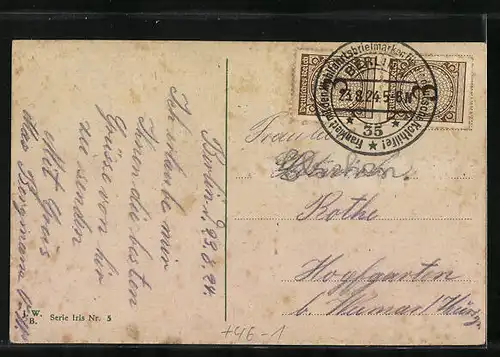 Berlin, d. 23.8.24.
Ich erlaube mir
Ihnen die besten
Grüsse von hier
zu senden
Mit Gruss
Max Bergmann
J. W.
B.
Serie Iris Nr. 5
Frankiert mit den Wohlfahrtsbriefmarken der Deutschen Nothilfe!
BERLIN
23.8.24.5-6N
* 35 *
Deutsches Reich
Fräulein
Rothe
Hopfgarten
b. Weimar/Thürg.
+46-1